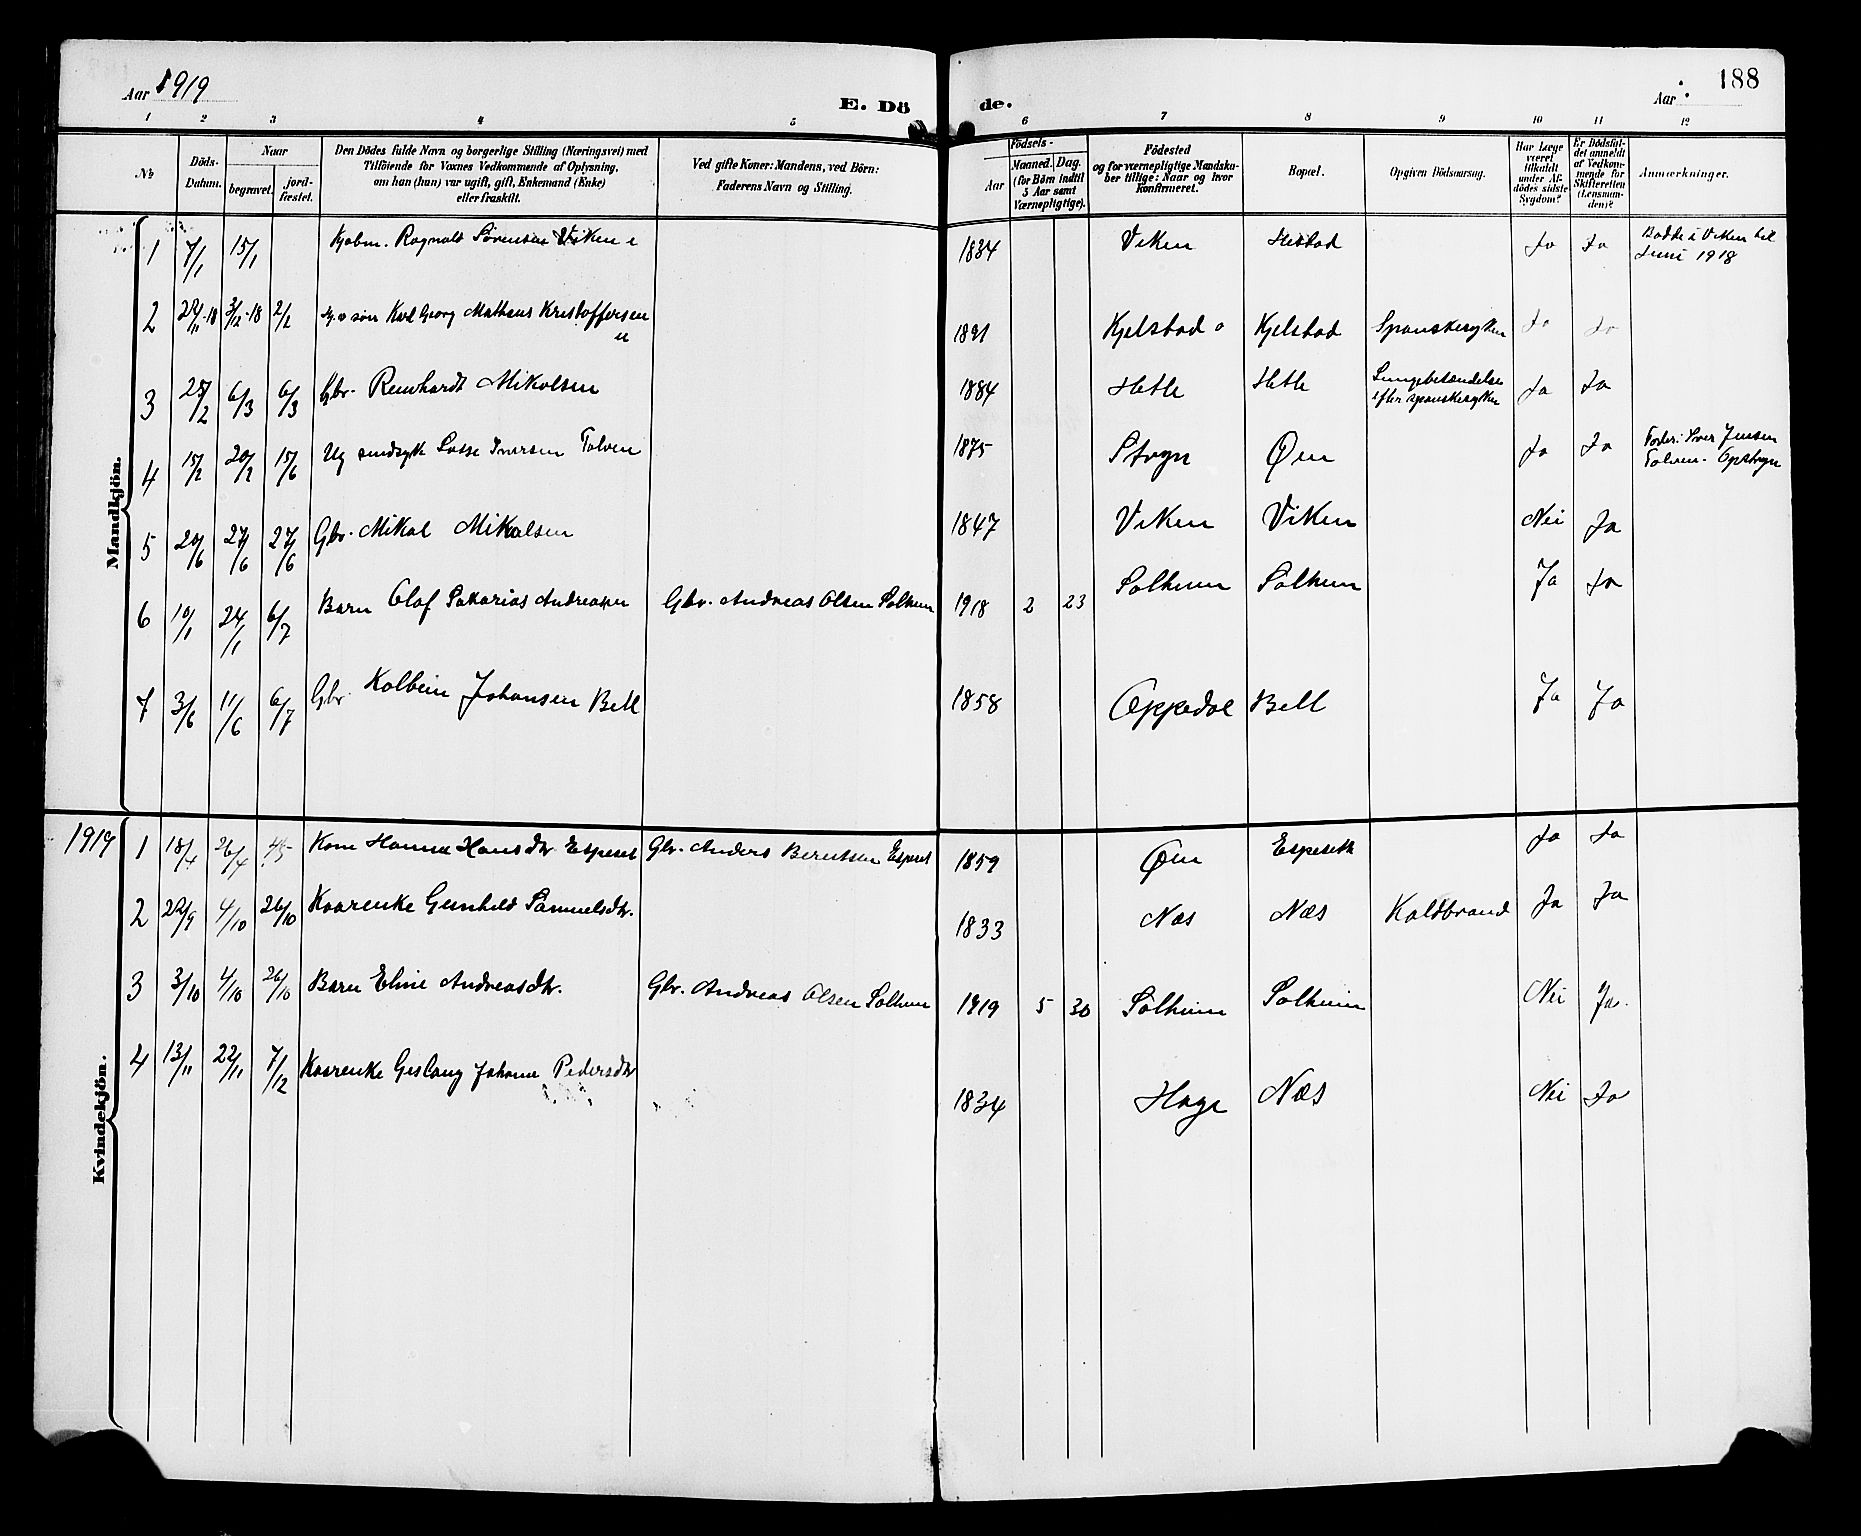 Aar 1919
E. Dö
de.
Aar
188
1 2 3 4 5 6 7 8 9 10 11 12
№
Döds-Datum.
Naar
begravet.
jord-fæstet.
Den Dödes fulde Navn og borgerlige Stilling (Næringsvei) med
Tilföiende for Voxnes Vedkommende af Oplysning,
om han (hun) var ugift, gift, Enkemand (Enke)
eller fraskilt.
Ved gifte Koner: Mandens, ved Börn:
Faderens Navn og Stilling.
Födsels-
Aar
Maaned. Dag.
(for Börn indtil
5 Aar samt
Værnepligtige).
Födested
og for værnepligtige Mandska-
ber tillige: Naar og hvor
Konfirmeret.
Bopæl.
Opgiven Dödsaarsag.
Har Læge
været
tilkaldt
under Af-
dödes sidste
Sygdom?
Er Dödsfal-
det anmeldt
af Vedkom-
mende for
Skifteretten
(Lensman-
den)?
Anmærkninger.
Mandkjön.
1 7/1 15/1 Kjøbm. Ragnald Sørensen Viken 1834 Viken Hestad Ja Ja Bodde i Viken til
Juni 1918
2 3/12-18 2/2 søn Karl Georg Mathæus Kristoffersen
u
1891 Kjelstad Kjelstad Spanskesyken Ja Ja
3 28/2 6/3 6/3 Gbr. Reinhardt Mikalsen 1884 Hetle Hetle Lungebetændelse
efter spanskesyken Ja Ja
4 15/2 20/2 15/6 Ug sindsyk Lasse Iversen Tolven 1875 Stryn Øen Ja Ja Foder: Iver Jensen
Tolven. Opstryn
5 20/6 27/6 27/6 Gbr. Mikal Mikalsen 1847 Viken Viken Nei Ja
6 10/1 24/1 6/7 Barn Olaf Sakarias Andreassen Gbr. Andreas Olsen Solheim 1918 2 23 Solheim Solheim Ja Ja
7 3/6 11/6 6/7 Gbr. Kolbein Johansen Bell 1858 Oppedal Bell Ja Ja
1919
Kvindekjön.
1 18/4 26/4 4/5 Kone Hanna Hansdtr. Espeset Gbr. Anders Berentsen Espeset 1859 Øen Espeseth Ja Ja
2 22/9 4/10 26/10 Kaarenke Gunhild Samuelsdtr. 1833 Næs Næs Koldbrand Ja Ja
3 3/10 4/10 26/10 Barn Eline Andreasdtr. Gbr. Andreas Olsen Solheim 1919 5 30 Solheim Solheim Nei Ja.
4 13/11 22/11 7/12 Kaarenke Johanne Pedersdtr 1834 Hage Næs Nei Ja